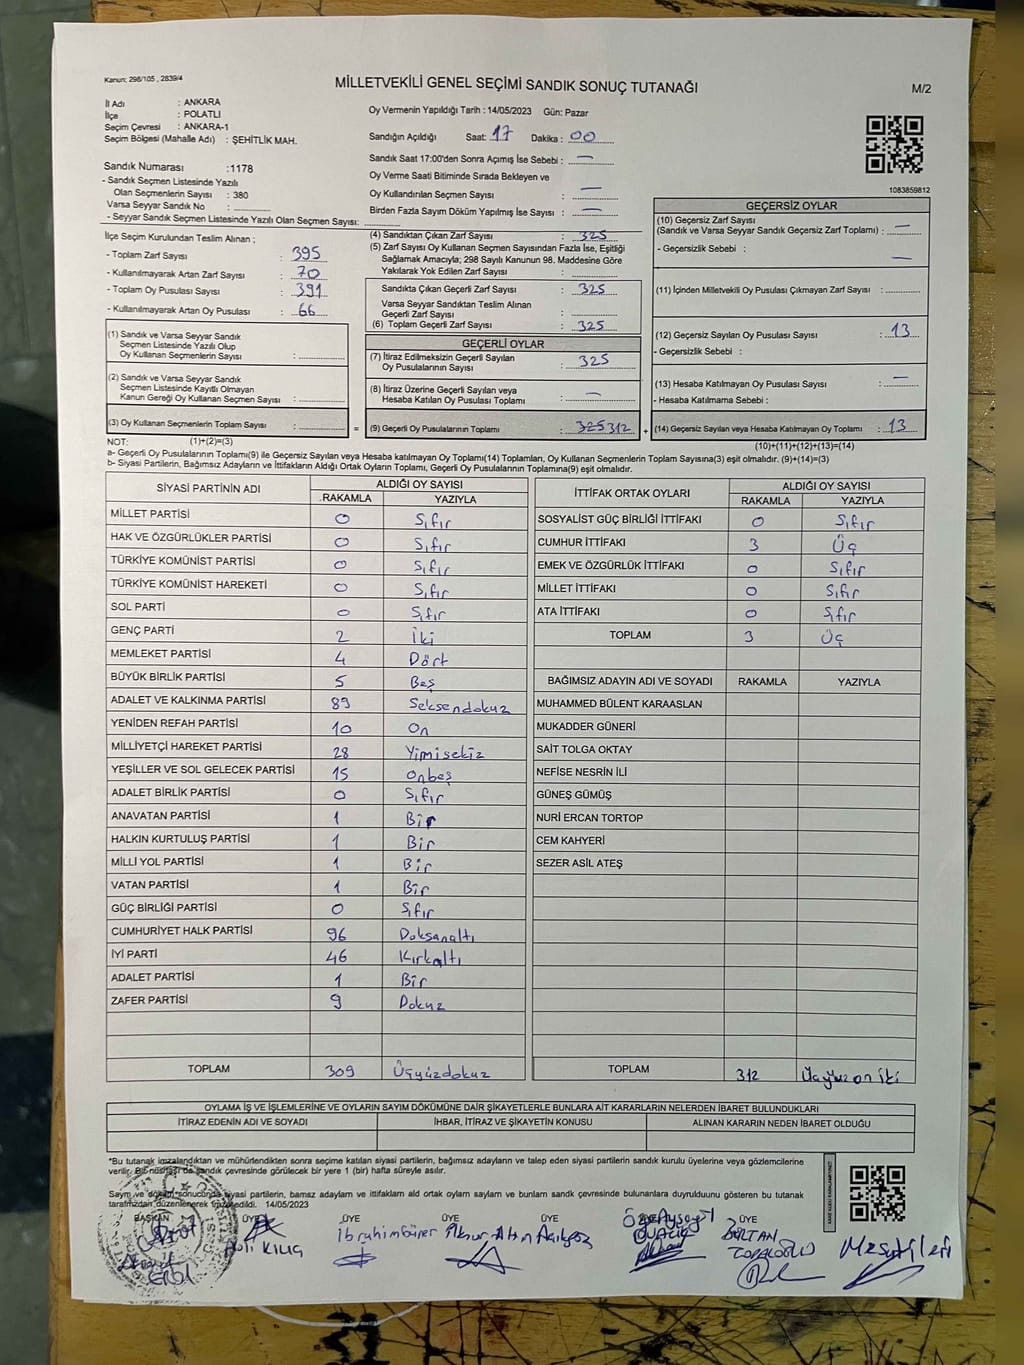 Kanun; 298/105 , 2839/4
MİLLETVEKİLİ GENEL SEÇİMİ SANDIK SONUÇ TUTANAĞI
M/2
İl Adı : ANKARA
İlçe : POLATLI
Seçim Çevresi : ANKARA-1
Seçim Bölgesi (Mahalle Adı) : ŞEHİTLİK MAH.
Sandık Numarası :1178
- Sandık Seçmen Listesinde Yazılı
Olan Seçmenlerin Sayısı : 380
Varsa Seyyar Sandık No :
- Seyyar Sandık Seçmen Listesinde Yazılı Olan Seçmen Sayısı:
İlçe Seçim Kurulundan Teslim Alınan ;
- Toplam Zarf Sayısı : 395
- Kullanılmayarak Artan Zarf Sayısı : 70
- Toplam Oy Pusulası Sayısı : 391
- Kullanılmayarak Artan Oy Pusulası : 66
(1) Sandık ve Varsa Seyyar Sandık
Seçmen Listesinde Yazılı Olup
Oy Kullanan Seçmenlerin Sayısı :
(2) Sandık ve Varsa Seyyar Sandık
Seçmen Listesinde Kayıtlı Olmayan
Kanun Gereği Oy Kullanan Seçmen Sayısı :
(3) Oy Kullanan Seçmenlerin Toplam Sayısı :
Oy Vermenin Yapıldığı Tarih : 14/05/2023 Gün: Pazar
Sandığın Açıldığı Saat: 17 Dakika : 00
Sandık Saat 17:00'den Sonra Açımış İse Sebebi : —
Oy Verme Saati Bitiminde Sırada Bekleyen ve
Oy Kullandırılan Seçmen Sayısı : —
Birden Fazla Sayım Döküm Yapılmış İse Sayısı : —
(4) Sandıktan Çıkan Zarf Sayısı : 325
(5) Zarf Sayısı Oy Kullanan Seçmen Sayısından Fazla İse, Eşitliği
Sağlamak Amacıyla; 298 Sayılı Kanunun 98. Maddesine Göre
Yakılarak Yok Edilen Zarf Sayısı :
Sandıkta Çıkan Geçerli Zarf Sayısı : 325
Varsa Seyyar Sandıktan Teslim Alınan
Geçerli Zarf Sayısı :
(6) Toplam Geçerli Zarf Sayısı : 325
GEÇERLİ OYLAR
(7) İtiraz Edilmeksizin Geçerli Sayılan
Oy Pusulalarının Sayısı : 325
(8) İtiraz Üzerine Geçerli Sayılan veya
Hesaba Katılan Oy Pusulası Toplamı : —
= (9) Geçerli Oy Pusulalarının Toplamı : 325 312 +
1083859812
GEÇERSİZ OYLAR
(10) Geçersiz Zarf Sayısı
(Sandık ve Varsa Seyyar Sandık Geçersiz Zarf Toplamı) : —
- Geçersizlik Sebebi : —
(11) İçinden Milletvekili Oy Pusulası Çıkmayan Zarf Sayısı :
(12) Geçersiz Sayılan Oy Pusulası Sayısı : 13
- Geçersizlik Sebebi :
(13) Hesaba Katılmayan Oy Pusulası Sayısı : —
- Hesaba Katılmama Sebebi :
(14) Geçersiz Sayılan veya Hesaba Katılmayan Oy Toplamı : 13
NOT: (1)+(2)=(3)
(10)+(11)+(12)+(13)=(14)
a- Geçerli Oy Pusulalarının Toplamı(9) ile Geçersiz Sayılan veya Hesaba katılmayan Oy Toplamı(14) Toplamları, Oy Kullanan Seçmenlerin Toplam Sayısına(3) eşit olmalıdır. (9)+(14)=(3)
b- Siyasi Partilerin, Bağımsız Adayların ve İttifakların Aldığı Ortak Oyların Toplamı, Geçerli Oy Pusulalarının Toplamına(9) eşit olmalıdır.
SİYASİ PARTİNİN ADI
ALDIĞI OY SAYISI
RAKAMLA YAZIYLA
MİLLET PARTİSİ 0 Sıfır
HAK VE ÖZGÜRLÜKLER PARTİSİ 0 Sıfır
TÜRKİYE KOMÜNİST PARTİSİ 0 Sıfır
TÜRKİYE KOMÜNİST HAREKETİ 0 Sıfır
SOL PARTİ 0 Sıfır
GENÇ PARTİ 2 İki
MEMLEKET PARTİSİ 4 Dört
BÜYÜK BİRLİK PARTİSİ 5 Beş
ADALET VE KALKINMA PARTİSİ 89 Seksendokuz
YENİDEN REFAH PARTİSİ 10 On
MİLLİYETÇİ HAREKET PARTİSİ 28 Yimisekiz
YEŞİLLER VE SOL GELECEK PARTİSİ 15 Onbeş
ADALET BİRLİK PARTİSİ 0 Sıfır
ANAVATAN PARTİSİ 1 Bir
HALKIN KURTULUŞ PARTİSİ 1 Bir
MİLLİ YOL PARTİSİ 1 Bir
VATAN PARTİSİ 1 Bir
GÜÇ BİRLİĞİ PARTİSİ 0 Sıfır
CUMHURİYET HALK PARTİSİ 96 Doksanaltı
İYİ PARTİ 46 Kırkaltı
ADALET PARTİSİ 1 Bir
ZAFER PARTİSİ 9 Dokuz
TOPLAM 309 Üçyüzdokuz
İTTİFAK ORTAK OYLARI
ALDIĞI OY SAYISI
RAKAMLA YAZIYLA
SOSYALİST GÜÇ BİRLİĞİ İTTİFAKI 0 Sıfır
CUMHUR İTTİFAKI 3 Üç
EMEK VE ÖZGÜRLÜK İTTİFAKI 0 Sıfır
MİLLET İTTİFAKI 0 Sıfır
ATA İTTİFAKI 0 Sıfır
TOPLAM 3 Üç
BAĞIMSIZ ADAYIN ADI VE SOYADI RAKAMLA YAZIYLA
MUHAMMED BÜLENT KARAASLAN
MUKADDER GÜNERİ
SAİT TOLGA OKTAY
NEFİSE NESRİN İLİ
GÜNEŞ GÜMÜŞ
NURİ ERCAN TORTOP
CEM KAHYERİ
SEZER ASİL ATEŞ
TOPLAM 312 Üçyüzon iki
OYLAMA İŞ VE İŞLEMLERİNE VE OYLARIN SAYIM DÖKÜMÜNE DAİR ŞİKAYETLERLE BUNLARA AİT KARARLARIN NELERDEN İBARET BULUNDUKLARI
İTİRAZ EDENİN ADI VE SOYADI İHBAR, İTİRAZ VE ŞİKAYETİN KONUSU ALINAN KARARIN NEDEN İBARET OLDUĞU
*Bu tutanak imzalandıktan ve mühürlendikten sonra seçime katılan siyasi partilerin, bağımsız adayların ve talep eden siyasi partilerin sandık kurulu üyelerine veya gözlemcilerine
verilir. Bir nüshası da sandık çevresinde görülecek bir yere 1 (bir) hafta süreyle asılır.
Sayım ve döküm sonucunda siyasi partilerin, bamsz adaylarn ve ittifaklarn ald ortak oylarn saylarn ve bunlarn sandk çevresinde bulunanlara duyrulduunu gösteren bu tutanak
tarafmzdan düzenlenerek imza edildi. 14/05/2023
BAŞKAN ÜYE ÜYE ÜYE ÜYE ÜYE
Erol
KILIÇ
İbrahim Gürer
SULTAN
TOPALOĞLU
Mesut İleri